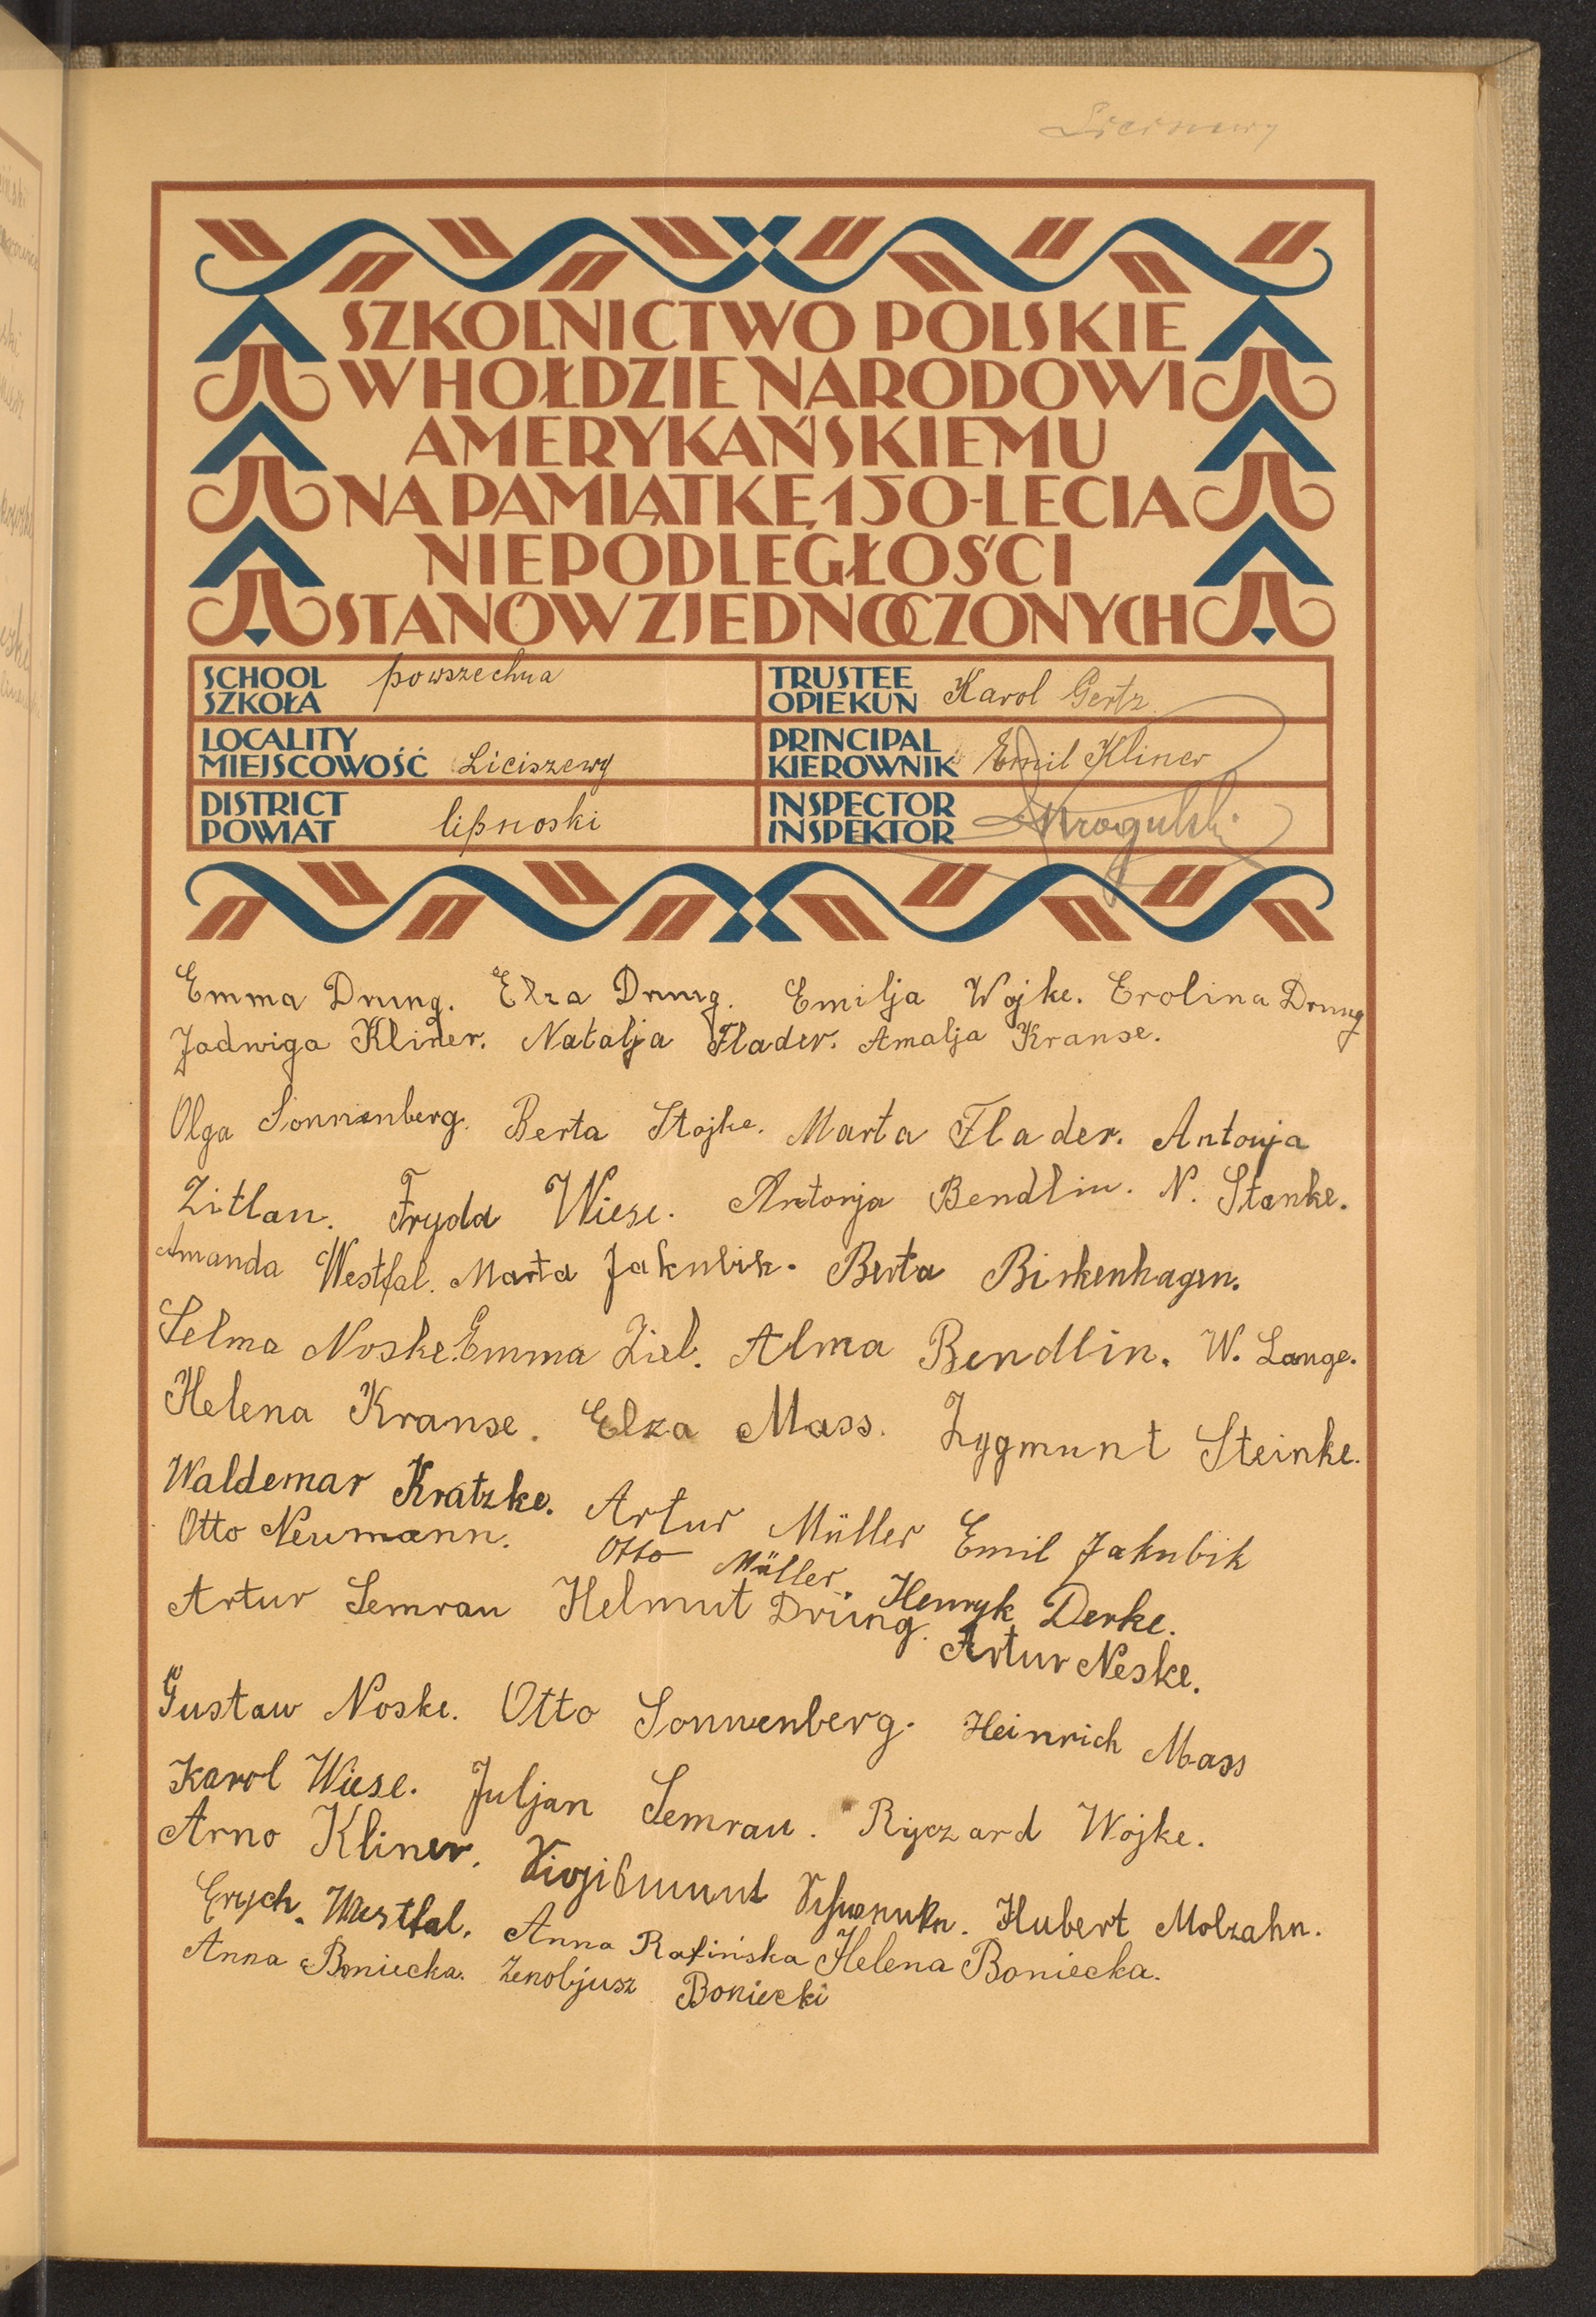 SZKOLNICTWO POLSKIE
W HOŁDZIE NARODOWI
AMERYKAŃSKIEMU
NA PAMIĄTKĘ 150-LECIA
NIEPODLEGŁOŚCI
STANÓW ZJEDNOCZONYCH
SCHOOL
SZKOŁA powszechna
TRUSTEE
OPIEKUN Karol Gertz
LOCALITY
MIEJSCOWOŚĆ Liciszewy
PRINCIPAL
KIEROWNIK Emil Kliner
DISTRICT
POWIAT lipnoski
INSPECTOR
INSPEKTOR
Emma Drung. Elza Drung. Emilja Wojke. Erolina Drung
Jadwiga Kliner. Natalja Flader. Amalja Kranse.
Olga Sonnenberg. Berta Stojke. Marta Flader. Antonja
Zitlan. Fryda Wiese. Antonja Bendlin. N. Stanke.
Amanda Westfal. Marta Jakubik. Berta Birkenhagen.
Selma Noske. Emma Ziel. Alma Bendlin. W. Lange.
Helena Kranse. Elza Mass. Zygmunt Steinke.
Waldemar Kratzke. Artur Müller Emil Jakubik
Otto Neumann. Otto Müller. Henryk Derke.
Artur Semrau Helmut Drung. Artur Neske.
Gustaw Noske. Otto Sonnenberg. Heinrich Mass
Karol Wiese. Juljan Semrau. Ryczard Wojke.
Arno Kliner. Hubert Molzahn.
Erych. Westfal. Anna Rafińska Helena Boniecka.
Anna Boniecka. Zenobjusz Boniecki